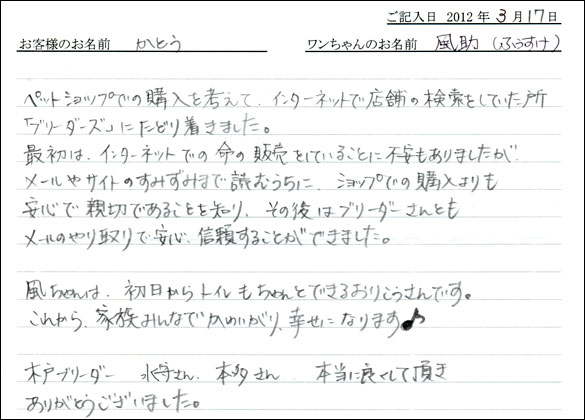 ご記入日 2012年3月17日
お客様のお名前 かとう ワンちゃんのお名前 風助(ふうすけ)
ペットショップでの購入を考えて、インターネットで店舗の検索をしていた所
「ブリーダーズ」にたどり着きました。
最初は、インターネットでの命の販売をしていることに不安もありましたが
メールやサイトのすみずみまで読むうちに、ショップでの購入よりも
安心で親切であることを知り、その後はブリーダーさんとも
メールのやり取りで安心、信頼することができました。
風ちゃんは、初日からトイレもちゃんとできるおりこうさんです。
これから、家族みんなでかわいがり、幸せになります♪
木戸ブリーダー 永守さん、本多さん、本当に良くして頂き
ありがとうございました。